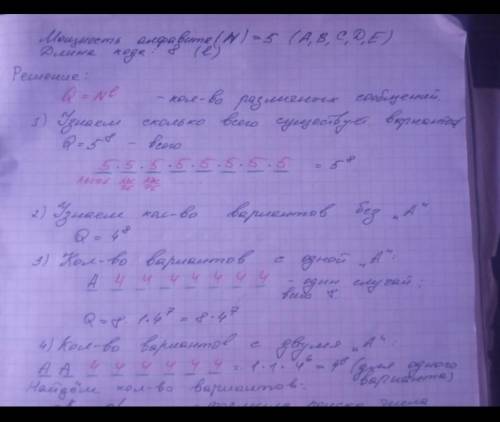 Мощность алфавита (N) = 5 (A, B, C, D, E)
Длина кода: 8 (l)
Решение:
Q = N^l - кол-во различных сообщений.
1) Узнаем сколько всего существует вариантов
Q = 5^8 - всего
5 · 5 · 5 · 5 · 5 · 5 · 5 · 5 = 5^8
2) Узнаем кол-во вариантов без „A“
Q = 4^8
3) Кол-во вариантов с одной „A“:
A 4 4 4 4 4 4 4 - один случай;
всего 8
Q = 8 · 1 · 4^7 = 8 · 4^7
4) Кол-во вариантов с двумя „A“:
A A 4 4 4 4 4 4 = 1 · 1 · 4^6 = 4^6 (для одного
варианта)
Найдём кол-во вариантов:
формула поиска числа